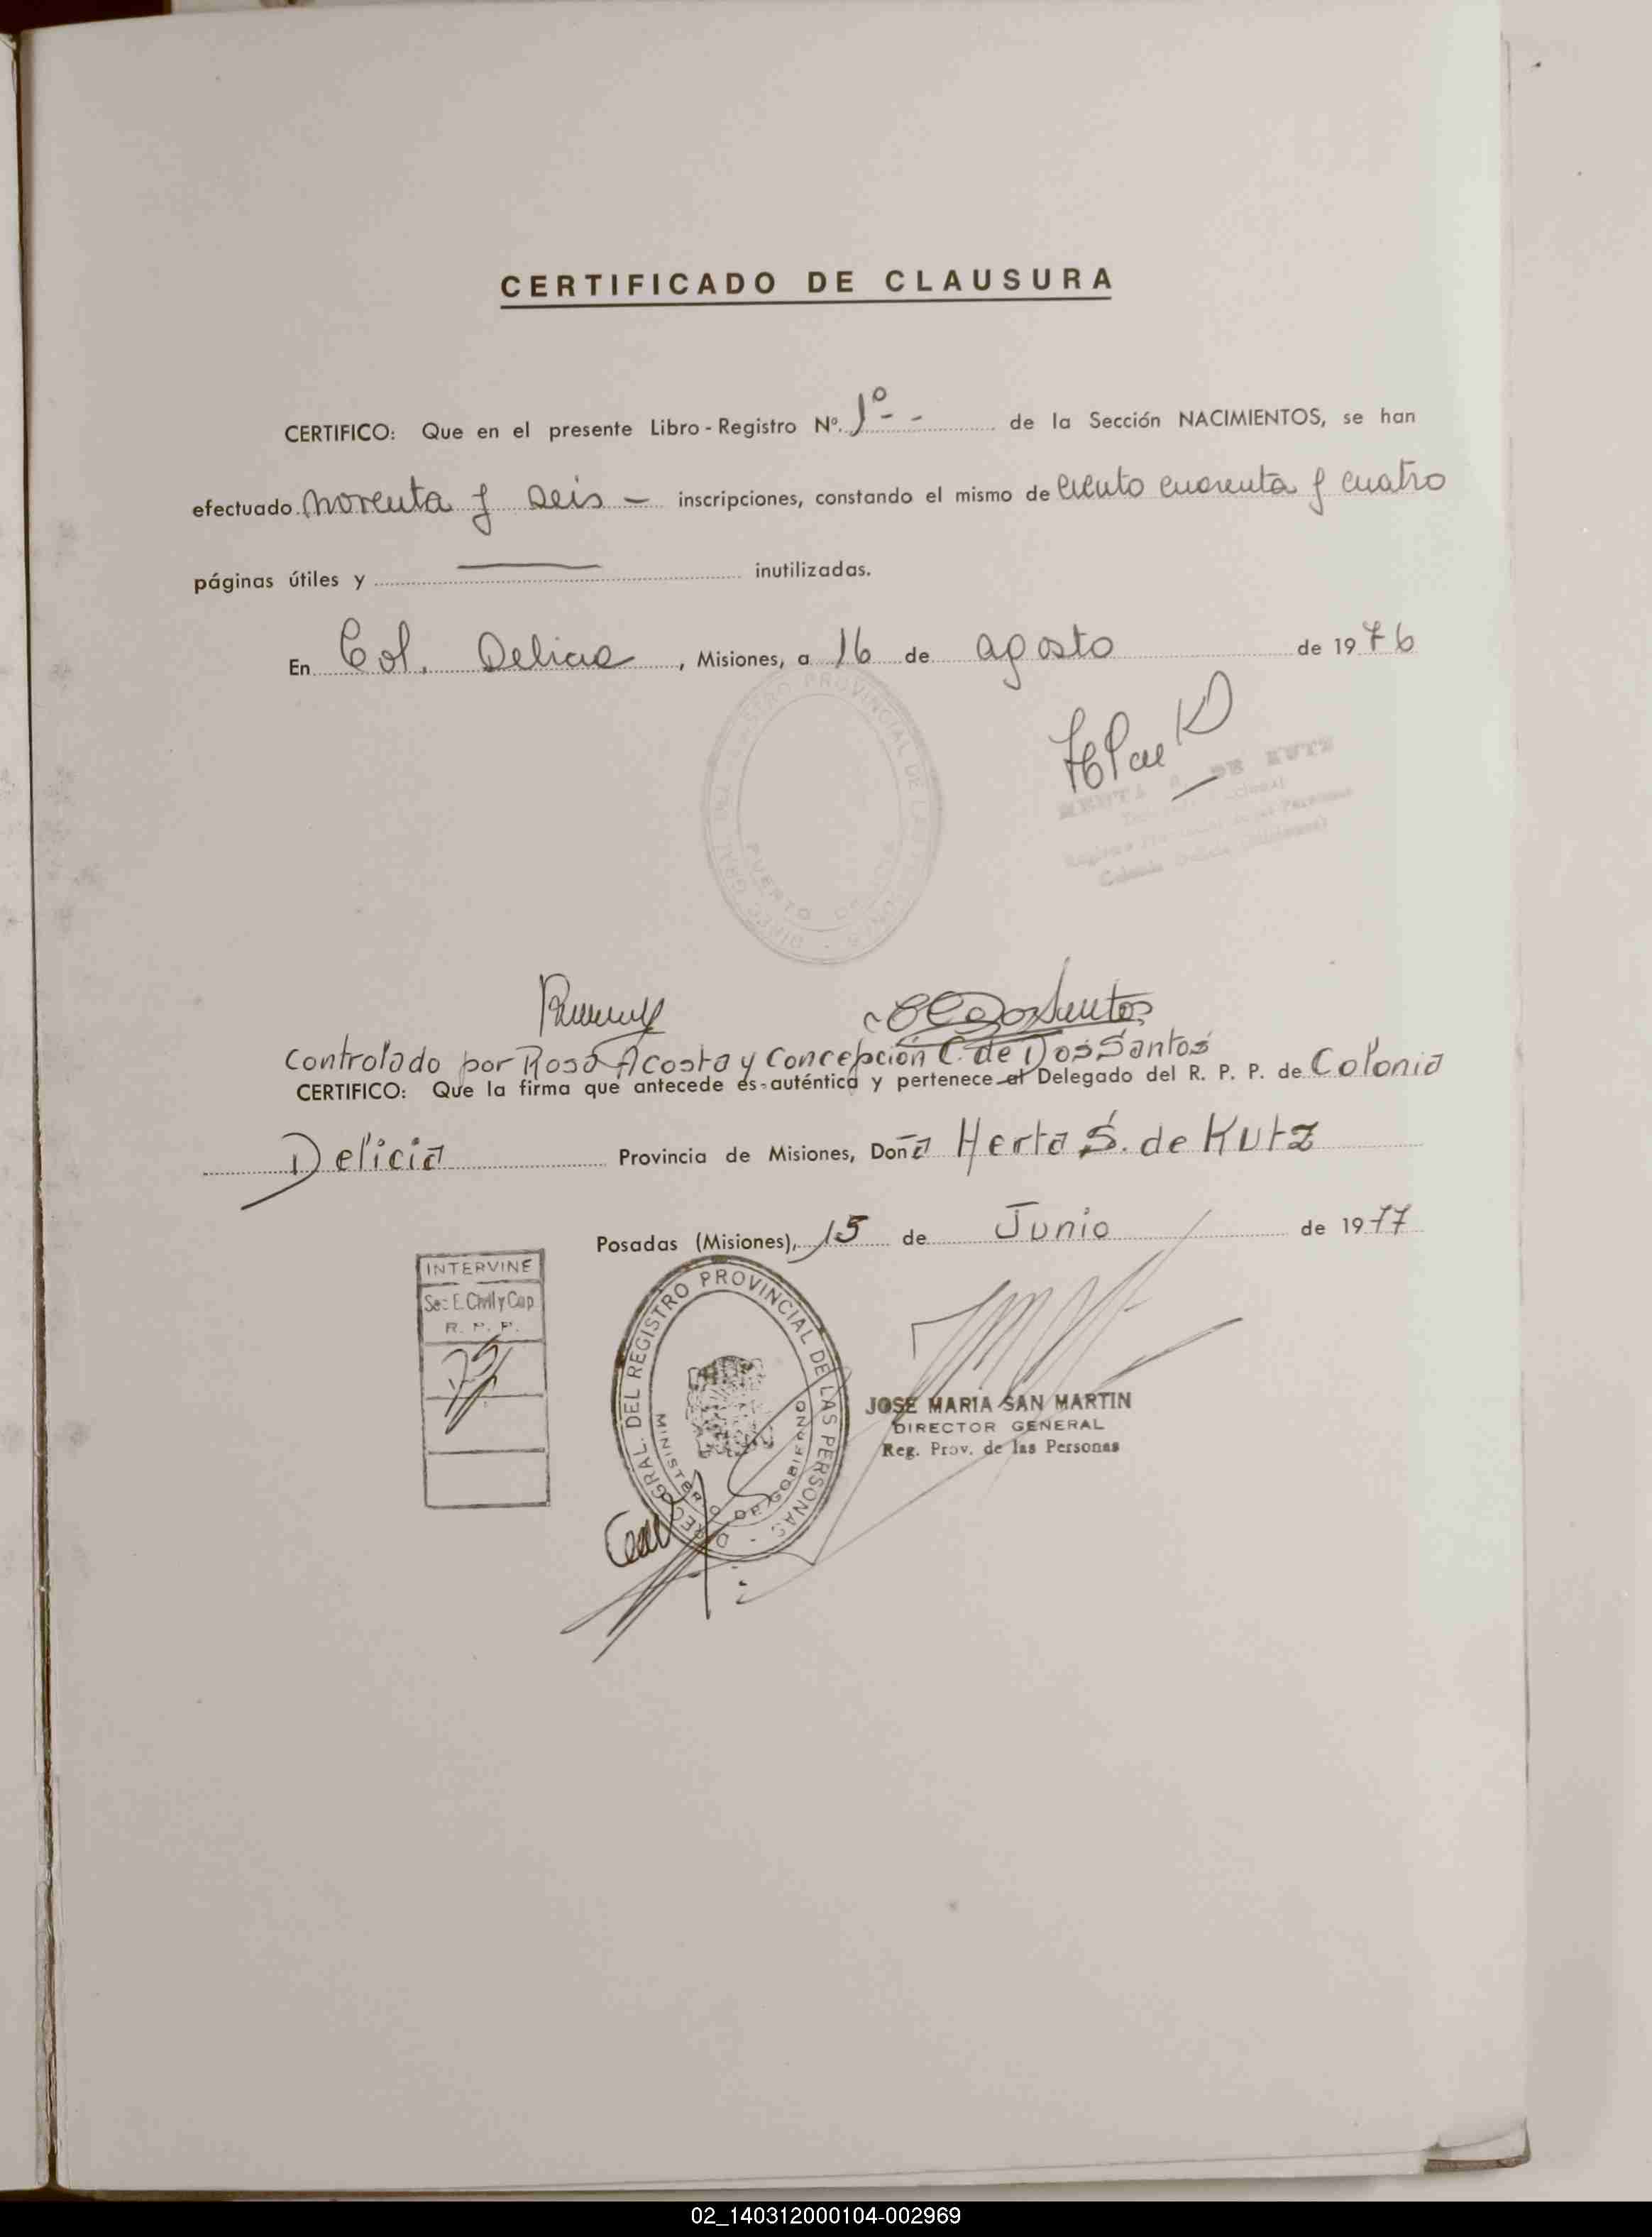 CERTIFICADO DE CLAUSURA
CERTIFICO: Que en el presente Libro - Registro Nº. 1º - - de la Sección NACIMIENTOS, se han
efectuado noventa y seis — inscripciones, constando el mismo de ciento cuarenta y cuatro
páginas útiles y — inutilizadas.
En Col. Delicia, Misiones, a 16 de agosto de 1976
DE KUTZ
Colonia Delicia (Misiones)
PUERTO
Controlado por Rosa Acosta y Concepción C. de Dos Santos
CERTIFICO: Que la firma que antecede es auténtica y pertenece al Delegado del R. P. P. de Colonia
Delicia Provincia de Misiones, Doña Herta S. de Kutz
Posadas (Misiones), 15 de Junio de 1977
INTERVINE
Sec E. Civil y Cap
R. P. P.
DIREC. GRAL. DEL REGISTRO PROVINCIAL DE LAS PERSONAS
MINISTERIO DE GOBIERNO
JOSE MARIA SAN MARTIN
DIRECTOR GENERAL
Reg. Prov. de las Personas
02_140312000104-002969